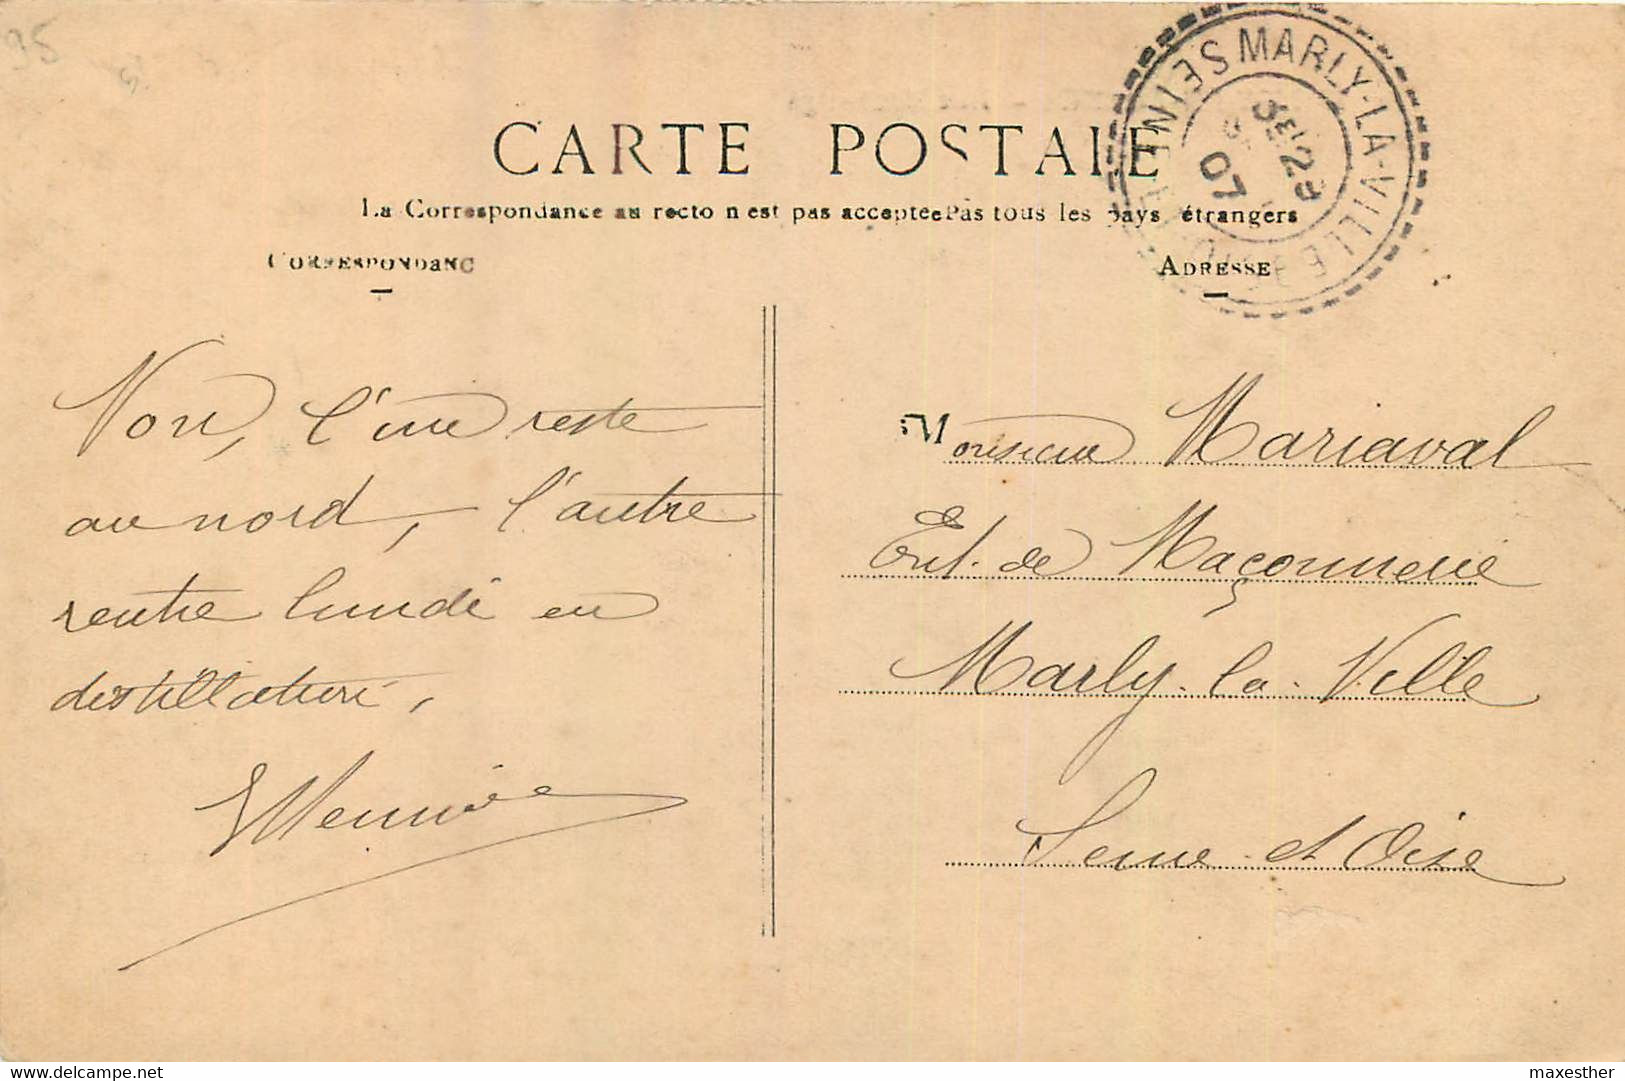 95
MARLY-LA-VILLE
SEINE-ET-OISE
07
CARTE POSTALE
La Correspondance au recto n est pas acceptee Pas tous les pays étrangers
CORRESPONDANC
ADRESSE
Non, l'une reste
au nord, l'autre
rentre lundi en
distillation,
Monsieur Mariaval
Ent. de Maçonnerie
Marly-la-Ville
Seine-et-Oise
maxesther